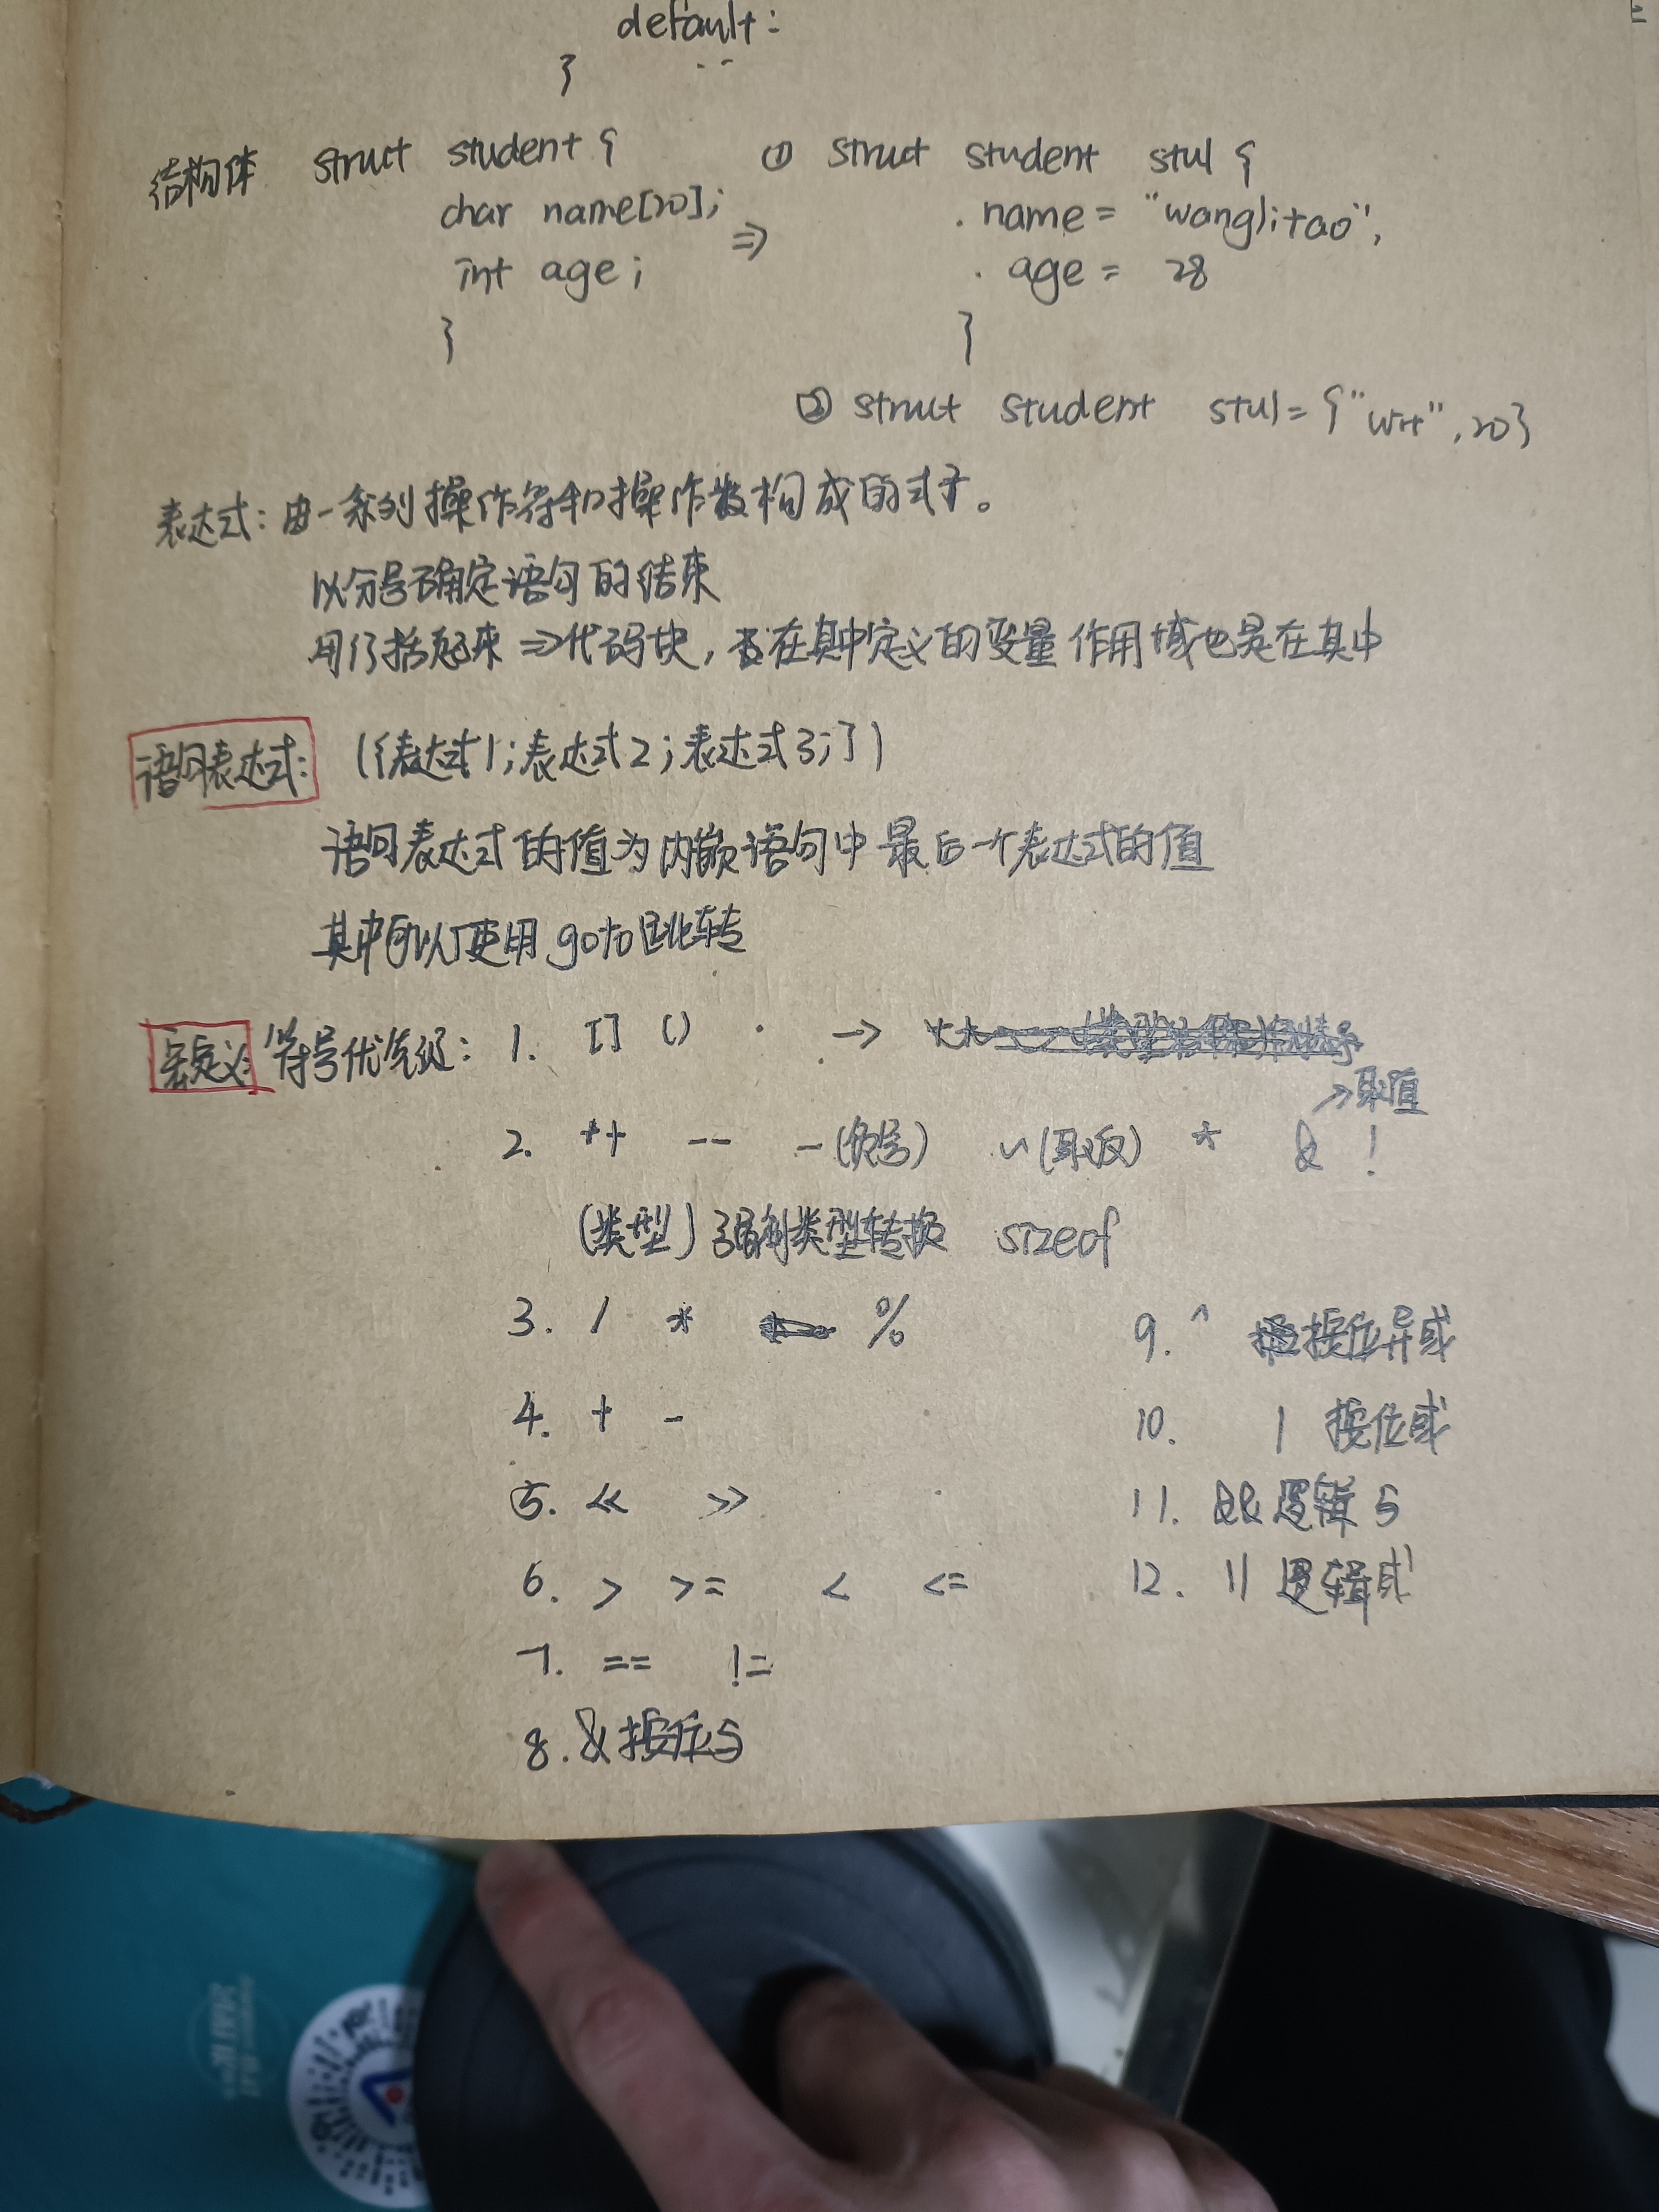 default:
}
结构体 struct student { ① struct student stu1 {
char name[20]; ⇒ .name = "wanglitao",
int age; .age = 28
} }
② struct student stu1 = {"wlt", 20}
表达式: 由一系列操作符和操作数构成的式子。
以分号确定语句的结束
用{}括起来 ⇒ 代码块, 在其中定义的变量作用域也是在其中
语句表达式: ({表达式1; 表达式2; 表达式3;})
语句表达式的值为内嵌语句中最后一个表达式的值
其中可以使用 goto 跳转
宏定义: 符号优先级: 1. [] () . ->
→取值
2. ++ -- -(负号) ~(取反) * & !
(类型) 强制类型转换 sizeof
3. / * % 9. ^ 按位异或
4. + - 10. | 按位或
5. << >> 11. && 逻辑与
6. > >= < <= 12. || 逻辑或
7. == !=
8. & 按位与